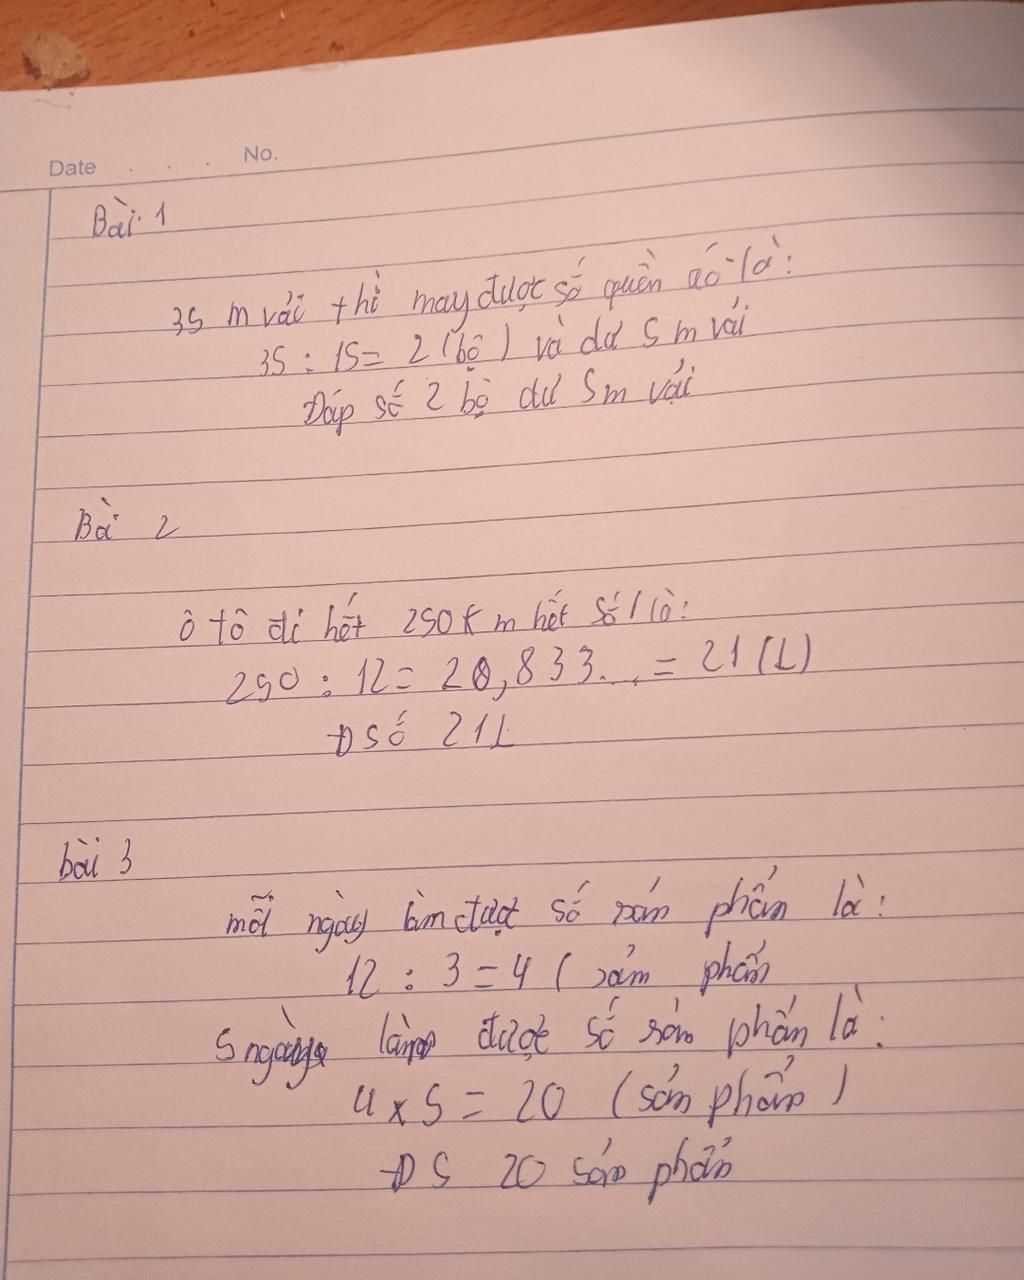 Date . . . No.
Bài 1
35 m vải thì may được số quần áo là:
35 : 15 = 2 (bộ) và dư 5 m vải
Đáp số 2 bộ dư 5m vải
Bài 2
ô tô đi hết 250 km hết số l là:
250 : 12 = 20,833... = 21 (L)
Đ số 21L
bài 3
mỗi ngày làm được số sản phẩm là:
12 : 3 = 4 ( sảm phẩm
5 ngày làm được số sản phẩm là:
4 x 5 = 20 (sản phẩm)
Đ S 20 sản phẩm